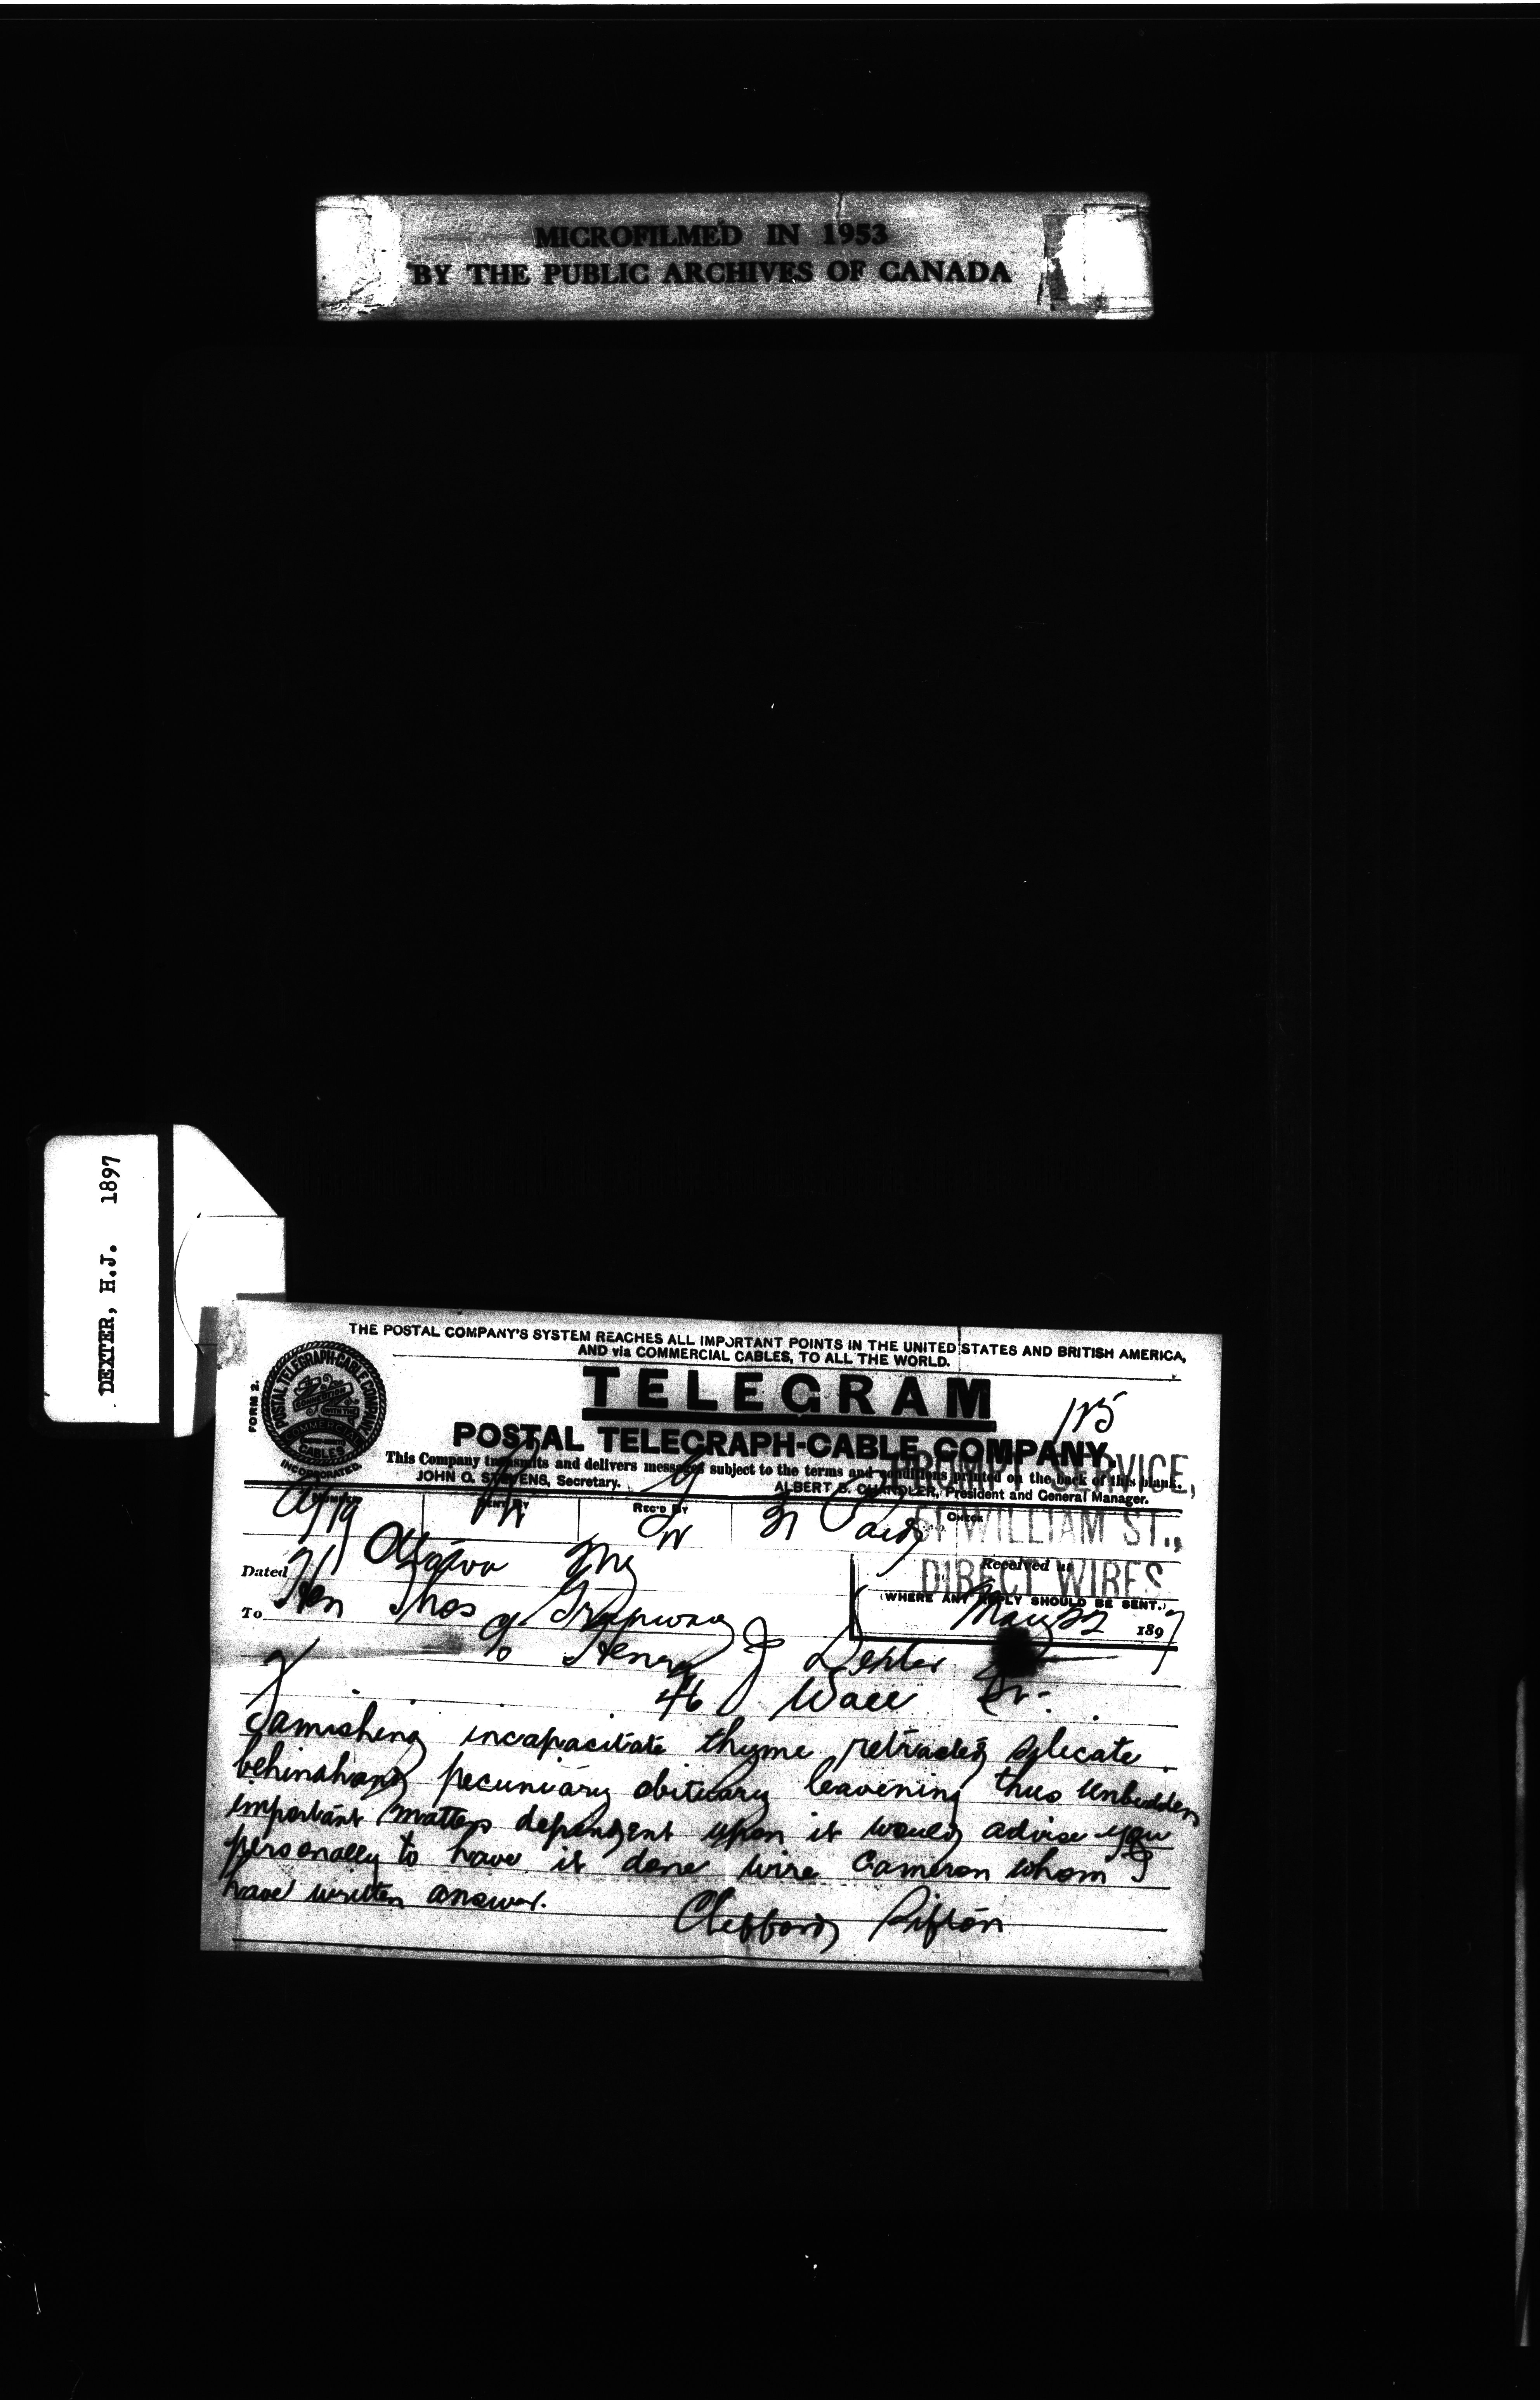 MICROFILMED IN 1953
BY THE PUBLIC ARCHIVES OF CANADA
DEXTER, H.J. 1897
THE POSTAL COMPANY'S SYSTEM REACHES ALL IMPORTANT POINTS IN THE UNITED STATES AND BRITISH AMERICA,
AND via COMMERCIAL CABLES, TO ALL THE WORLD.
FORM 2.
POSTAL TELEGRAPH-CABLE COMPANY
COMMERCIAL CABLES
INCORPORATED.
TELEGRAM
POSTAL TELEGRAPH-CABLE COMPANY.
This Company transmits and delivers messages subject to the terms and conditions printed on the back of this blank.
JOHN O. STEVENS, Secretary. ALBERT B. CHANDLER, President and General Manager.
SERVICE,
SENT BY REC'D BY CHECK
Paid
WILLIAM ST.,
DIRECT WIRES
Received at
(WHERE ANY REPLY SHOULD BE SENT.)
Dated Ottawa
May 22 1897
To Hon Thos Greenway
c/o Henry J Dexter
46 Wall St.
incapacitate thyme retracted silicate
behindhand pecuniary obituary leavening thus unbidden
important matters dependent upon it would advise you
personally to have it done wire Cameron whom I
have written answer.
Clifford Sifton